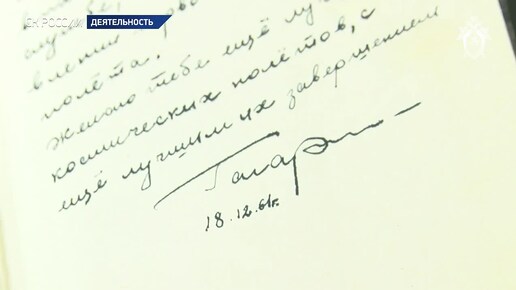 СК РОССИИ ДЕЯТЕЛЬНОСТЬ
службе,
полёта.
желаю тебе ещё
космических полётов, с
ещё лучшим их завершением
Гагарин
18.12.61г.